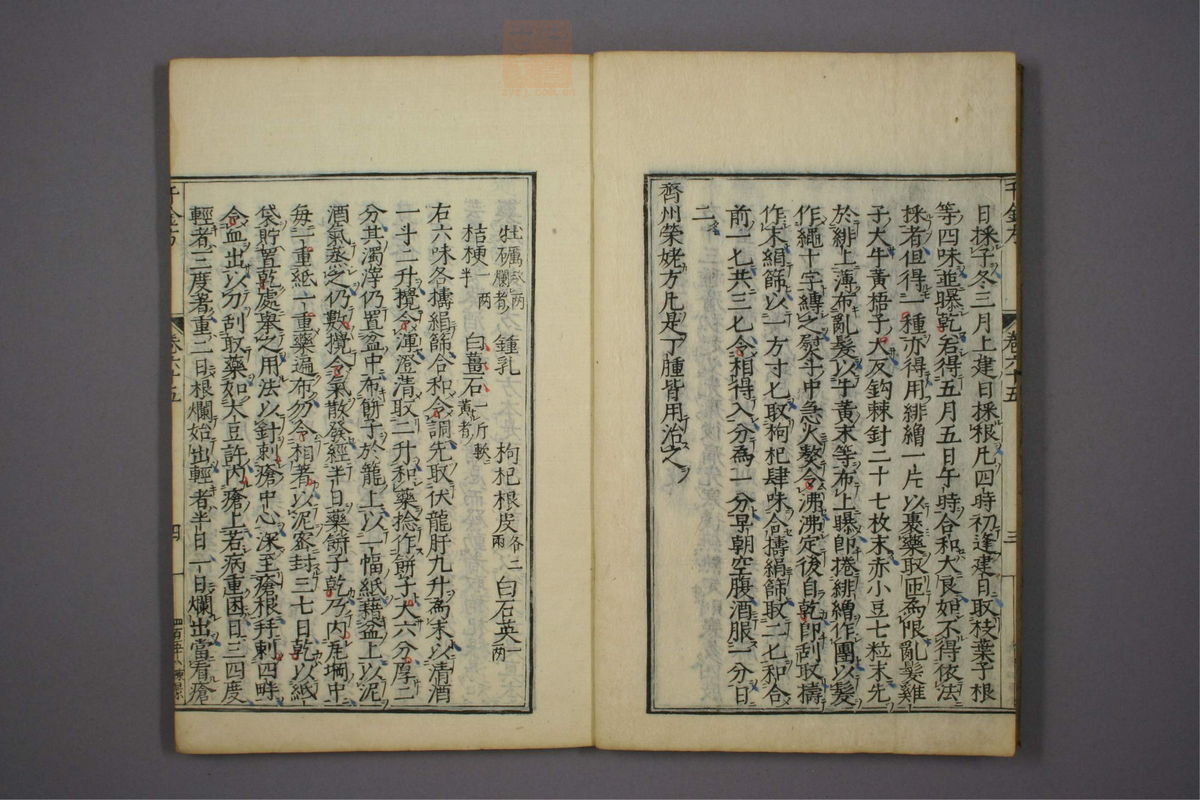 日採子冬三月上建日採根凡四時初逢建日取枝葉子根
等四味並曝乾若得五月五日午時合和大良如不得依法
採者但得一種亦得用緋繒一片以裹藥取匝為限亂髮雞
子大牛黃梧子大反鈎棘針二十七枚末赤小豆七粒末先
於緋上薄布亂髮以牛黃末等布上曝即捲緋繒作團以髮
作繩十字縛之熨斗中急火熬令沸沸定後自乾即刮取擣
作末絹篩以一方寸匕取枸杞肆味合擣絹篩取二匕和合
前一匕共三匕令相得入分為一分早朝空腹酒服一分日
二
齊州榮姥方凡是丁腫皆用治之
千金方
卷六十五
三
牡礪爛者九兩 鍾乳 枸杞根皮各二兩 白石英一兩
桔梗一兩半 白薑石一斤軟黃者
右六味各擣絹篩合和令調先取伏龍肝九升為末以清酒
一斗二升攪令渾澄清取二升和藥捻作餅子大六分厚二
分其濁滓仍置盆中布餅子於籠上以一幅紙藉盆上以泥
酒氣蒸之仍數攪令氣散發經半日藥餅子乾乃內瓦堈中
每一重紙一重藥遍布勿令相著以泥密封三七日乾以紙
袋貯置乾處舉之用法以針刺瘡中心深至瘡根并刺四畔
令血出以刀刮取藥如大豆許內瘡上若病重困日三四度
輕者三度者重二日根爛始出輕者半日一日爛出當看瘡
千金方
卷六十五
四